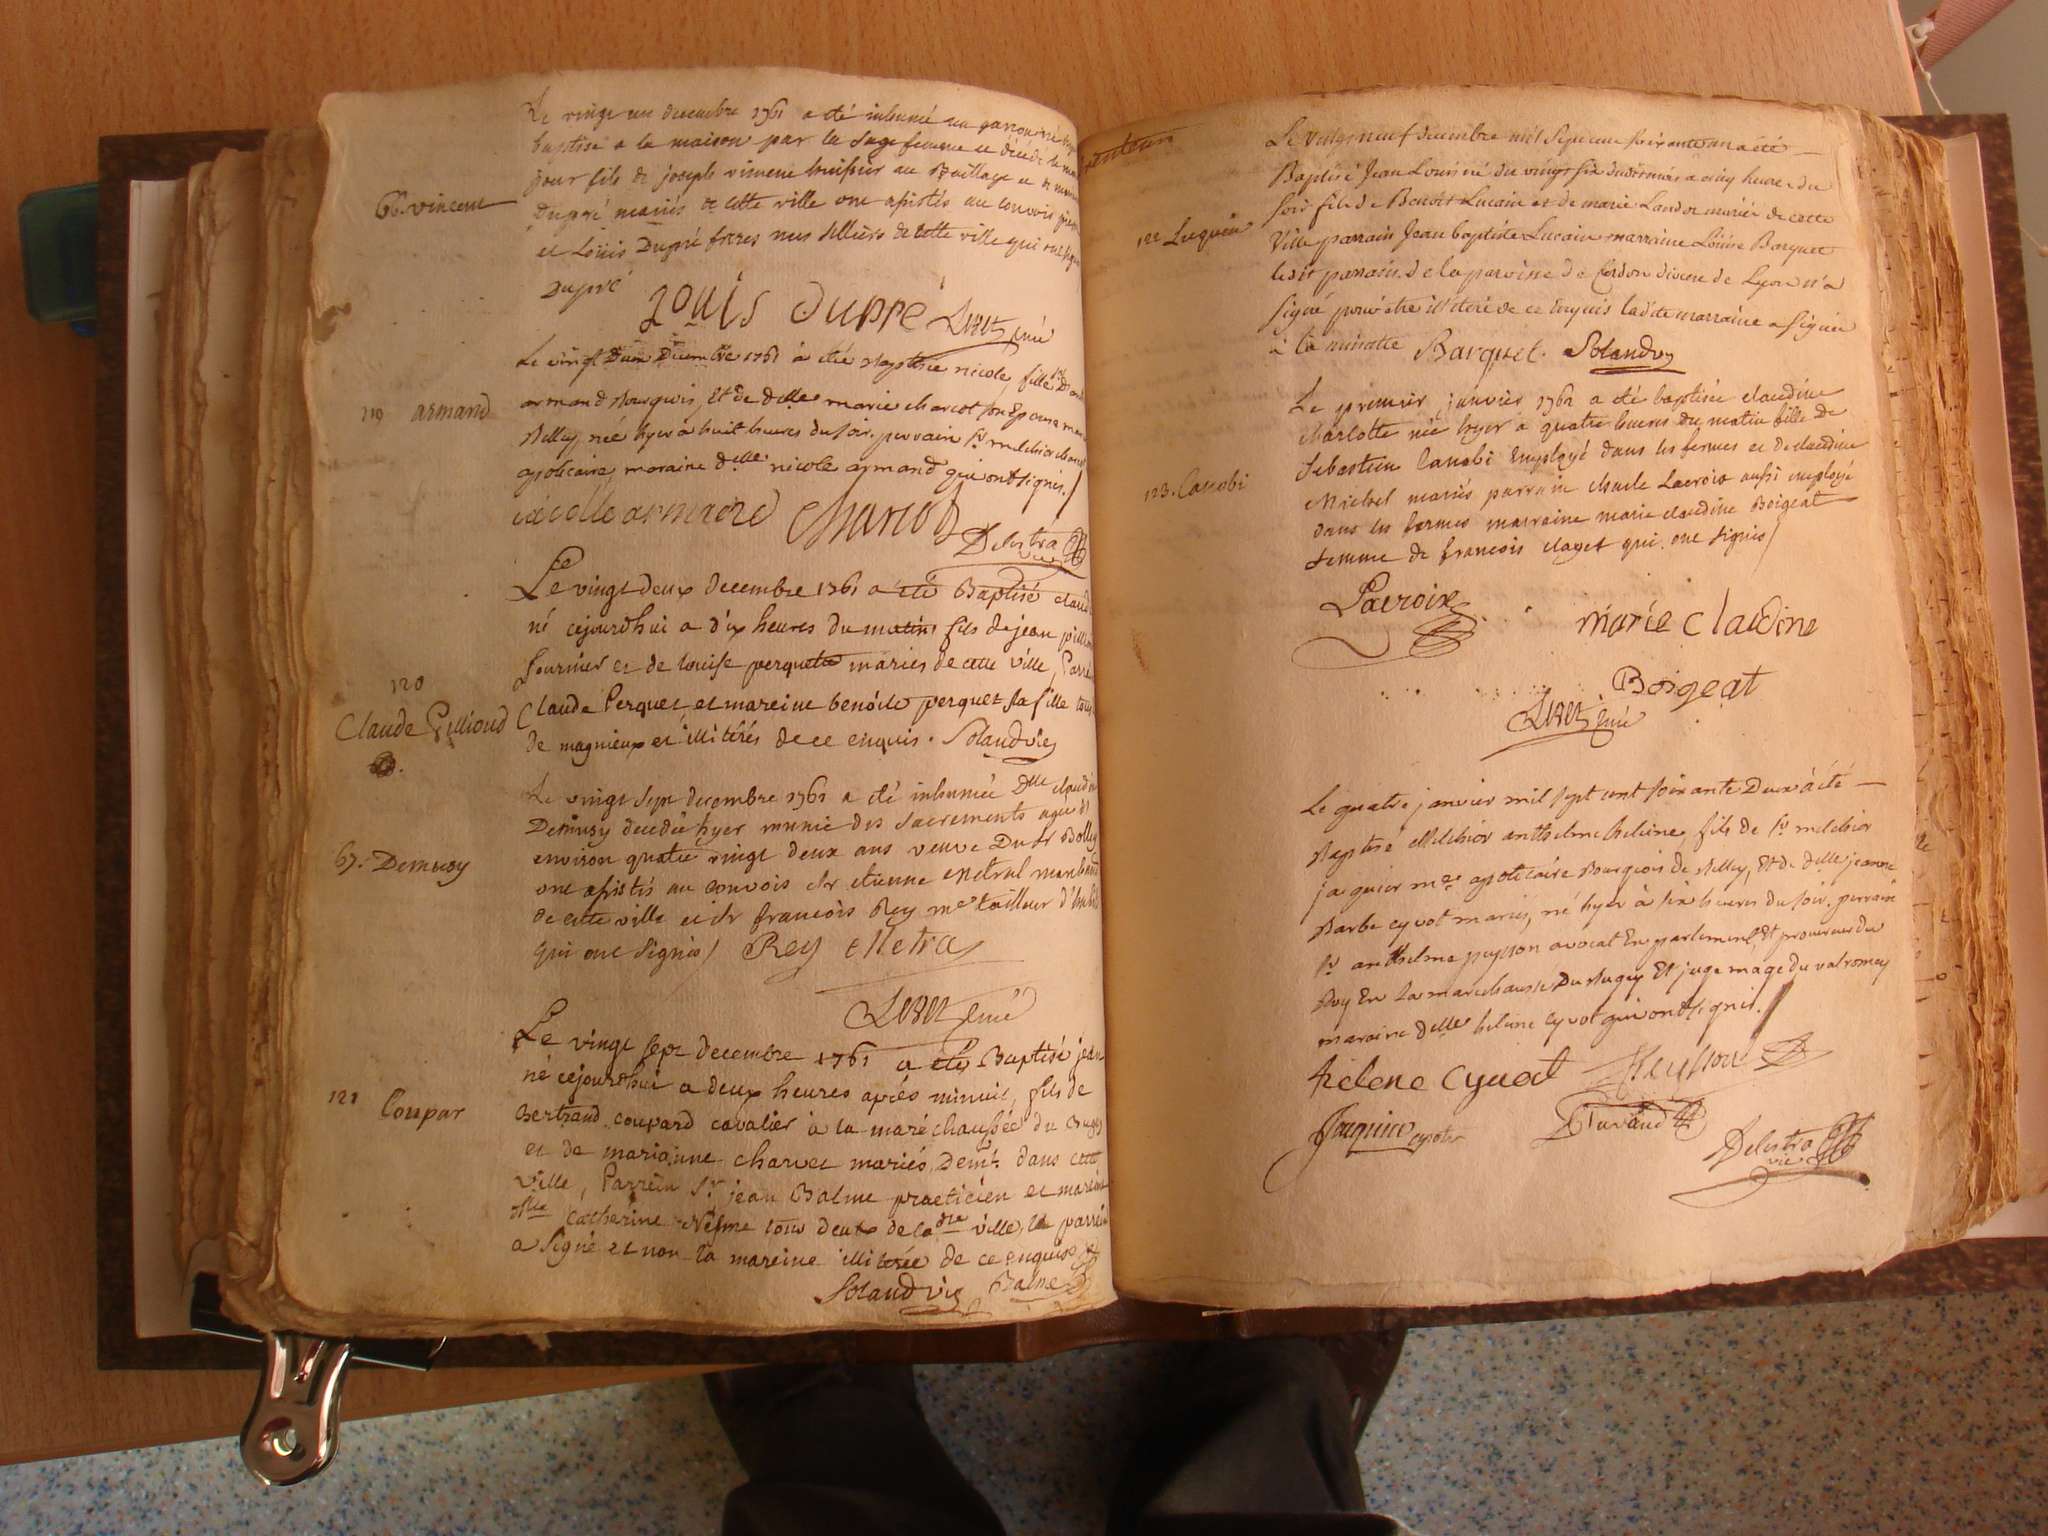 Le vingt un decembre 1761 a été inhumé un garçon né
baptisé a la maison par la sage femme et décédé le
jour fils de joseph vincent huissier au Baillage et de
66. vincent
Dupré mariés de cette ville ont assistés au convois
et Loüis Dupré freres mes selliers de cette ville qui ont signé
Dupré
Louis Dupré
Le vingt Dum Decembre 1761 à été Baptisée nicole, fille
119 armand
armand Bourgeois, et de delle marie charcot son Epouse
Belley, née hyer à huit heures du soir. perrain sr melchior charcot
apoticaire maraine delle nicole armand qui ont signés./
nicolle armand Charcot
Delestra
vic
Le vingt deux decembre 1761 a été Baptisé claude
né cejourdhui a dix heures du matin fils de jean
fournier et de louise perquet mariés de cette ville, Parrein
120
Claude Pillioud
Claude Perquet et mareine benôite perquet sa fille tous
de magnieux et illitérés de ce enquis. Solandvic
Le vingt sept decembre 1761 a été inhumée Dlle claudine
Demusy decedée hyer munie des sacrements agée d'
67. Demusy
environ quatre vingt deux ans veuve Du Sr Bolley
ont assistés au convois Sr etienne Metral marchand
de cette ville et Sr francois Rey me tailleur d'habit
qui ont signés/ Rey Metral
Le vingt sept decembre 1761 a été Baptisé jean
né cejourdhui a deux heures après minuit, fils de
121 Coupar
Bertrand coupard cavalier à la maréchaussée du Bugey
et de marianne charvet mariés Demts dans cette
ville, Parrein Sr jean Balme praeticien et mareine
Dlle catherine Nesme tous deux de ladte ville, le parrein
a signé et non la mareine illiterée de ce enquise
Solandvic Balme
Le vingt neuf decembre mil sept cent soixante un a été
Baptisé Jean Louis né du vingt six du dit mois a cinq heures du
122 Luquin
soir fils de Benoit Lucain et de marie Landoz mariés de cette
Ville parrain Jean baptiste Lucain marraine Louise Barquet
ledit parrain de la paroisse de Cerdon diocese de Lyon n'a
signé pour être illiteré de ce enquis ladite marraine a signée
à la minutte Barquet. Solandvic
Le premier janvier 1762 a été baptisée claudine
charlotte née hyer a quatre heures du matin fille de
sebastien Canobi Employé dans les fermes et de claudine
123. Canobi
Michel mariés parrain charle Lacroix aussi employé
dans les fermes marraine marie claudine Boigeat
femme de francois clayet qui ont signés/
Lacroix
marie Claudine
Boigeat
Le quatre janvier mil sept cent soixante Deux à été
Baptisé Melchior anthelme helene, fils de sr melchior
jaquier me apoticaire Bourgeois de Belley, et de delle jeanne
Barbe cyvot mariés, né hyer à six heures du soir. perrain
sr anthelme peysson avocat En parlement, et procureur du
Roy En la marechaussée Du Bugey et juge mage du valromey
maraine delle helene cyvot qui ont signés./
helene Cyvot Peysson
Jaquier
Delestra
vic